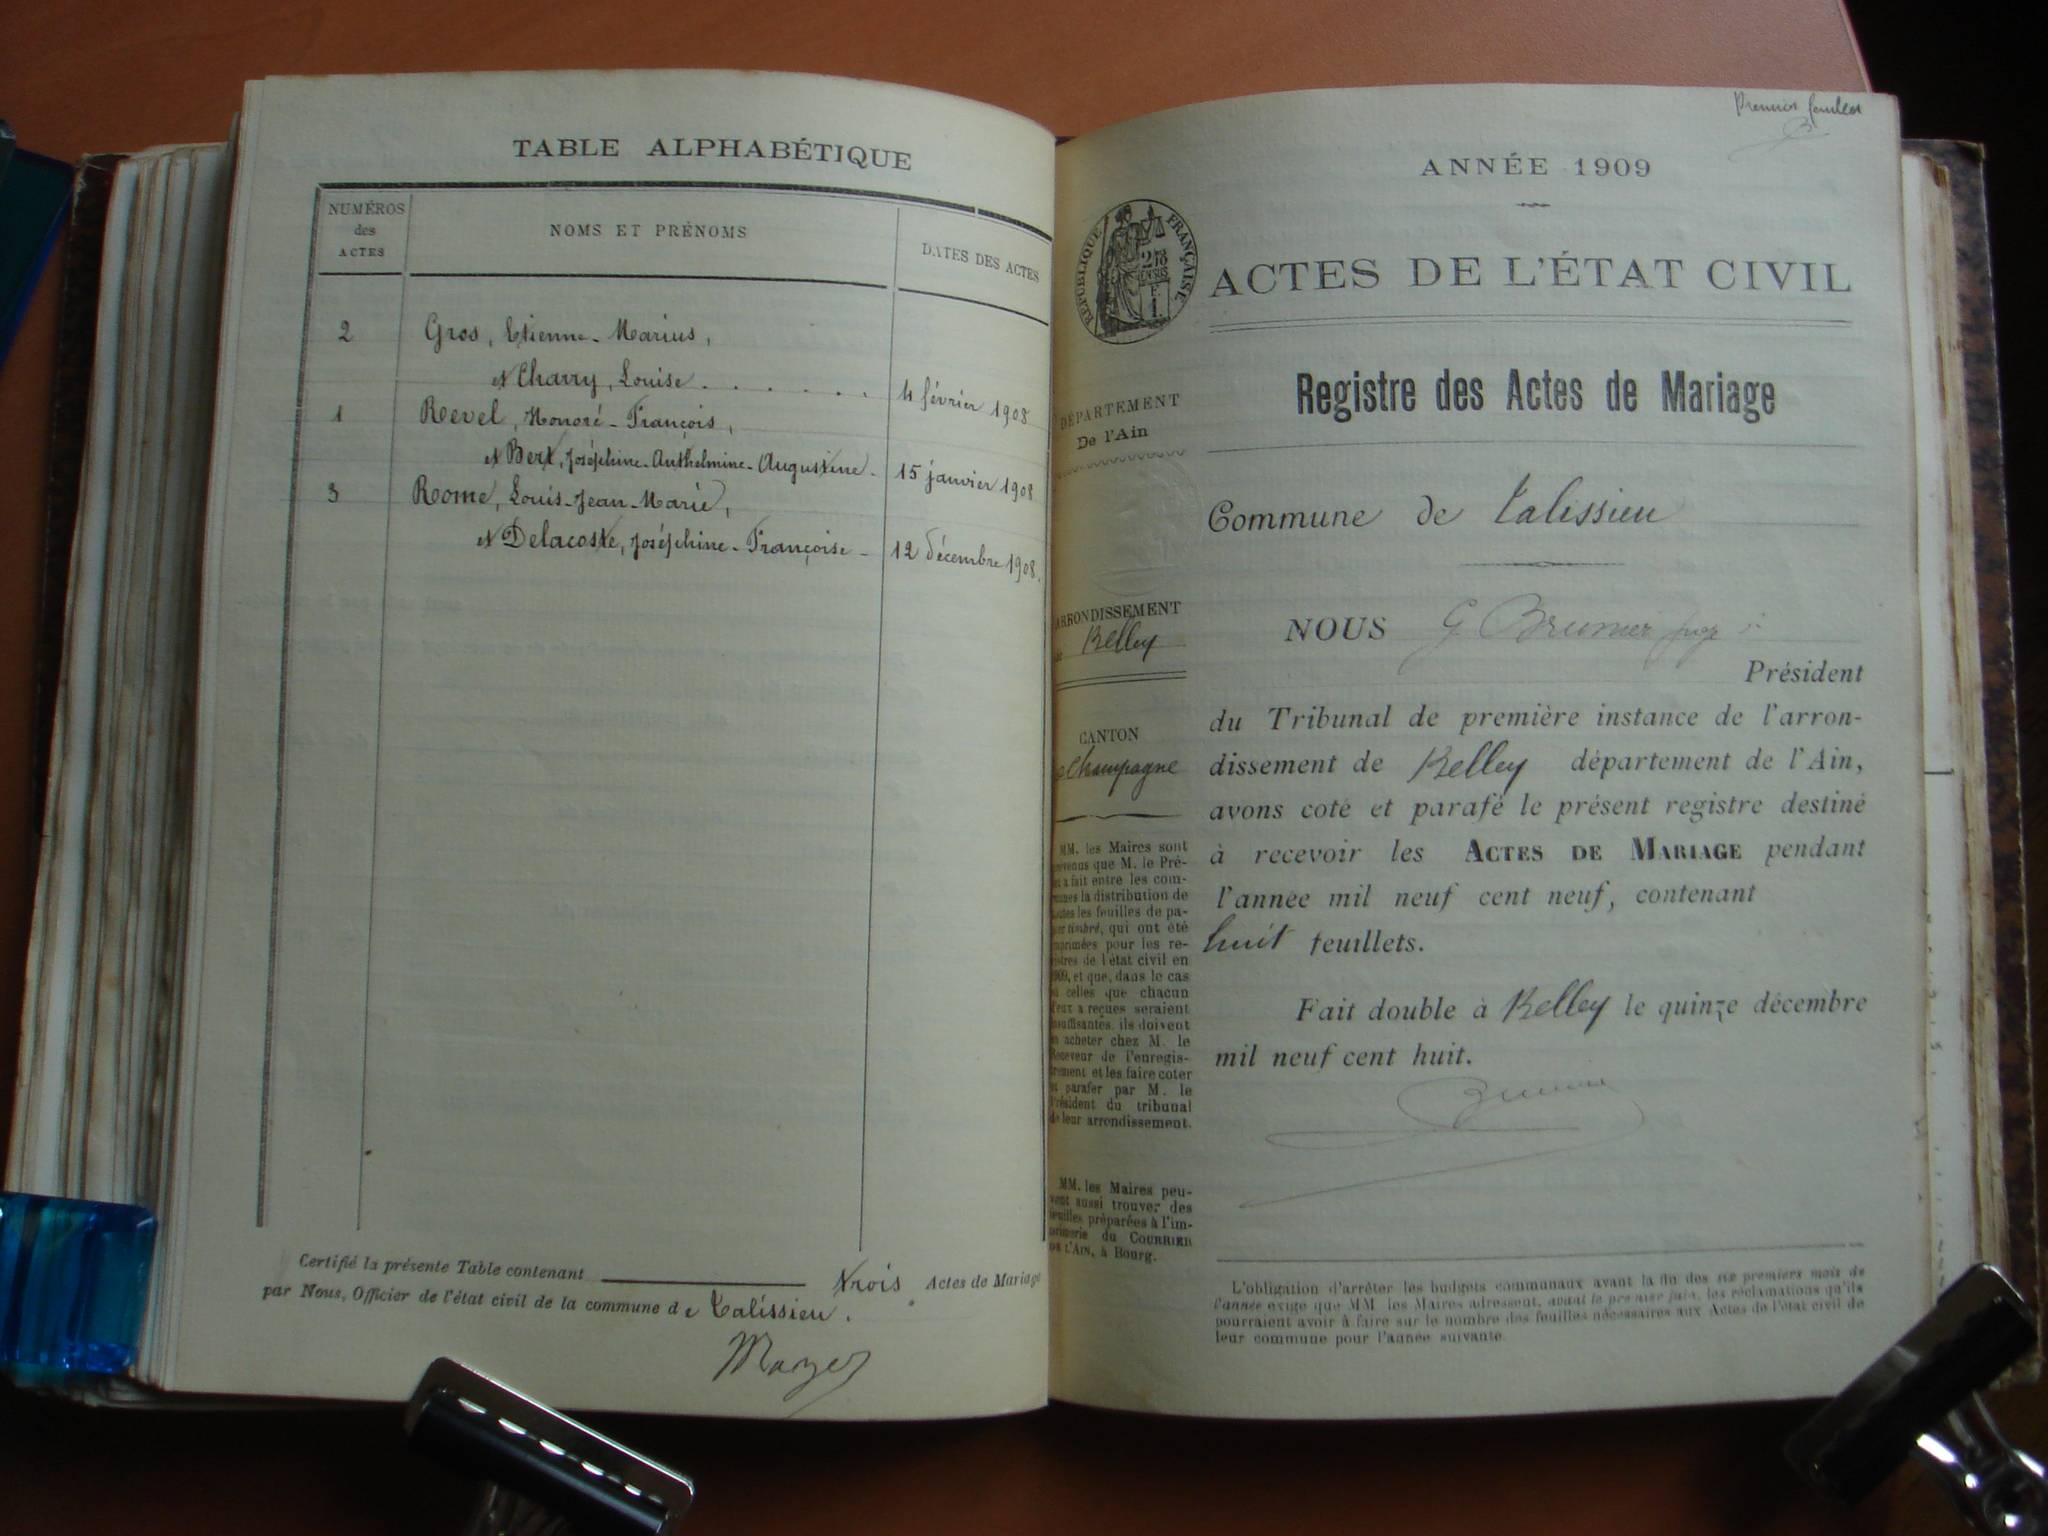 TABLE ALPHABÉTIQUE
NUMÉROS
des
ACTES
NOMS ET PRÉNOMS
DATES DES ACTES
2 Gros, Etienne-Marius,
et Charry, Louise . . . . . . 4 février 1908
1 Revel, Honoré-François,
et Bert, Joséphine-Anthelmine-Augustine - 15 janvier 1908
3 Rome, Louis-Jean-Marie,
et Delacoste, Joséphine-Françoise - 12 décembre 1908.
Certifié la présente Table contenant trois Actes de Mariage
par Nous, Officier de l'état civil de la commune de Talissieu.
Premier feuillet
ANNÉE 1909
RÉPUBLIQUE FRANÇAISE
ACTES DE L'ÉTAT CIVIL
Registre des Actes de Mariage
DÉPARTEMENT
De l'Ain
Commune de Talissieu
ARRONDISSEMENT
Belley
CANTON
Champagne
MM. les Maires sont
prévenus que M. le Pré-
fet a fait entre les com-
munes la distribution de
toutes les feuilles de pa-
pier timbré, qui ont été
imprimées pour les re-
gistres de l'état civil en
1909, et que, dans le cas
où celles que chacun
d'eux a reçues seraient
insuffisantes, ils doivent
en acheter chez M. le
Receveur de l'enregis-
trement et les faire coter
et parafer par M. le
Président du tribunal
de leur arrondissement.
MM. les Maires peu-
vent aussi trouver des
feuilles préparées à l'im-
primerie du COURRIER
DE L'AIN, à Bourg.
NOUS G Brunier juge
Président
du Tribunal de première instance de l'arron-
dissement de Belley département de l'Ain,
avons coté et parafé le présent registre destiné
à recevoir les ACTES DE MARIAGE pendant
l'année mil neuf cent neuf, contenant
huit feuillets.
Fait double à Belley le quinze décembre
mil neuf cent huit.
L'obligation d'arrêter les budgets communaux avant la fin des six premiers mois de
l'année exige que MM. les Maires adressent, avant le premier juin, les réclamations qu'ils
pourraient avoir à faire sur le nombre des feuilles nécessaires aux Actes de l'état civil de
leur commune pour l'année suivante.